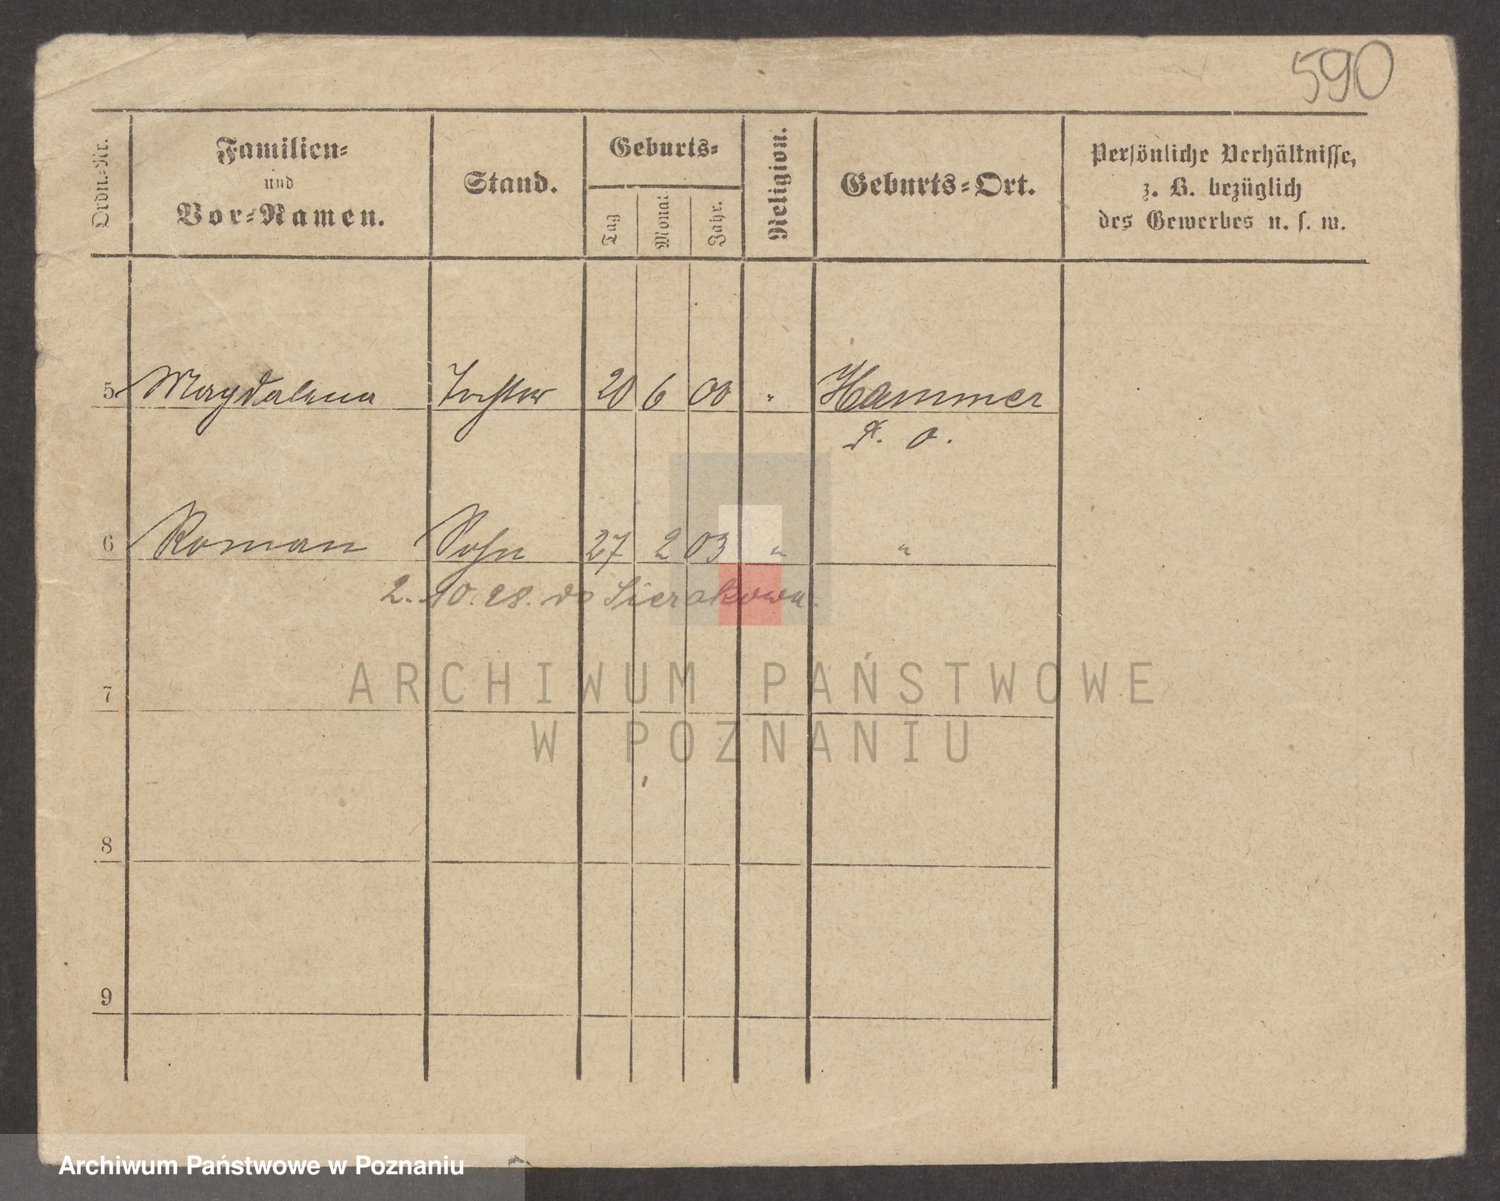 590
Ordn.-Nr.
Familien-
und
Vor-Namen.
Stand.
Geburts-
Tag
Monat
Jahr.
Religion.
Geburts-Ort.
Persönliche Verhältnisse,
z. B. bezüglich
des Gewerbes u. s. w.
5 Magdalena Tochter 20 6 00 " Hammer
d. O.
6 Roman Sohn 27 2 03 " "
2. 10. 28. do Sierakowa.
7
ARCHIWUM PAŃSTWOWE
W POZNANIU
8
9
Archiwum Państwowe w Poznaniu